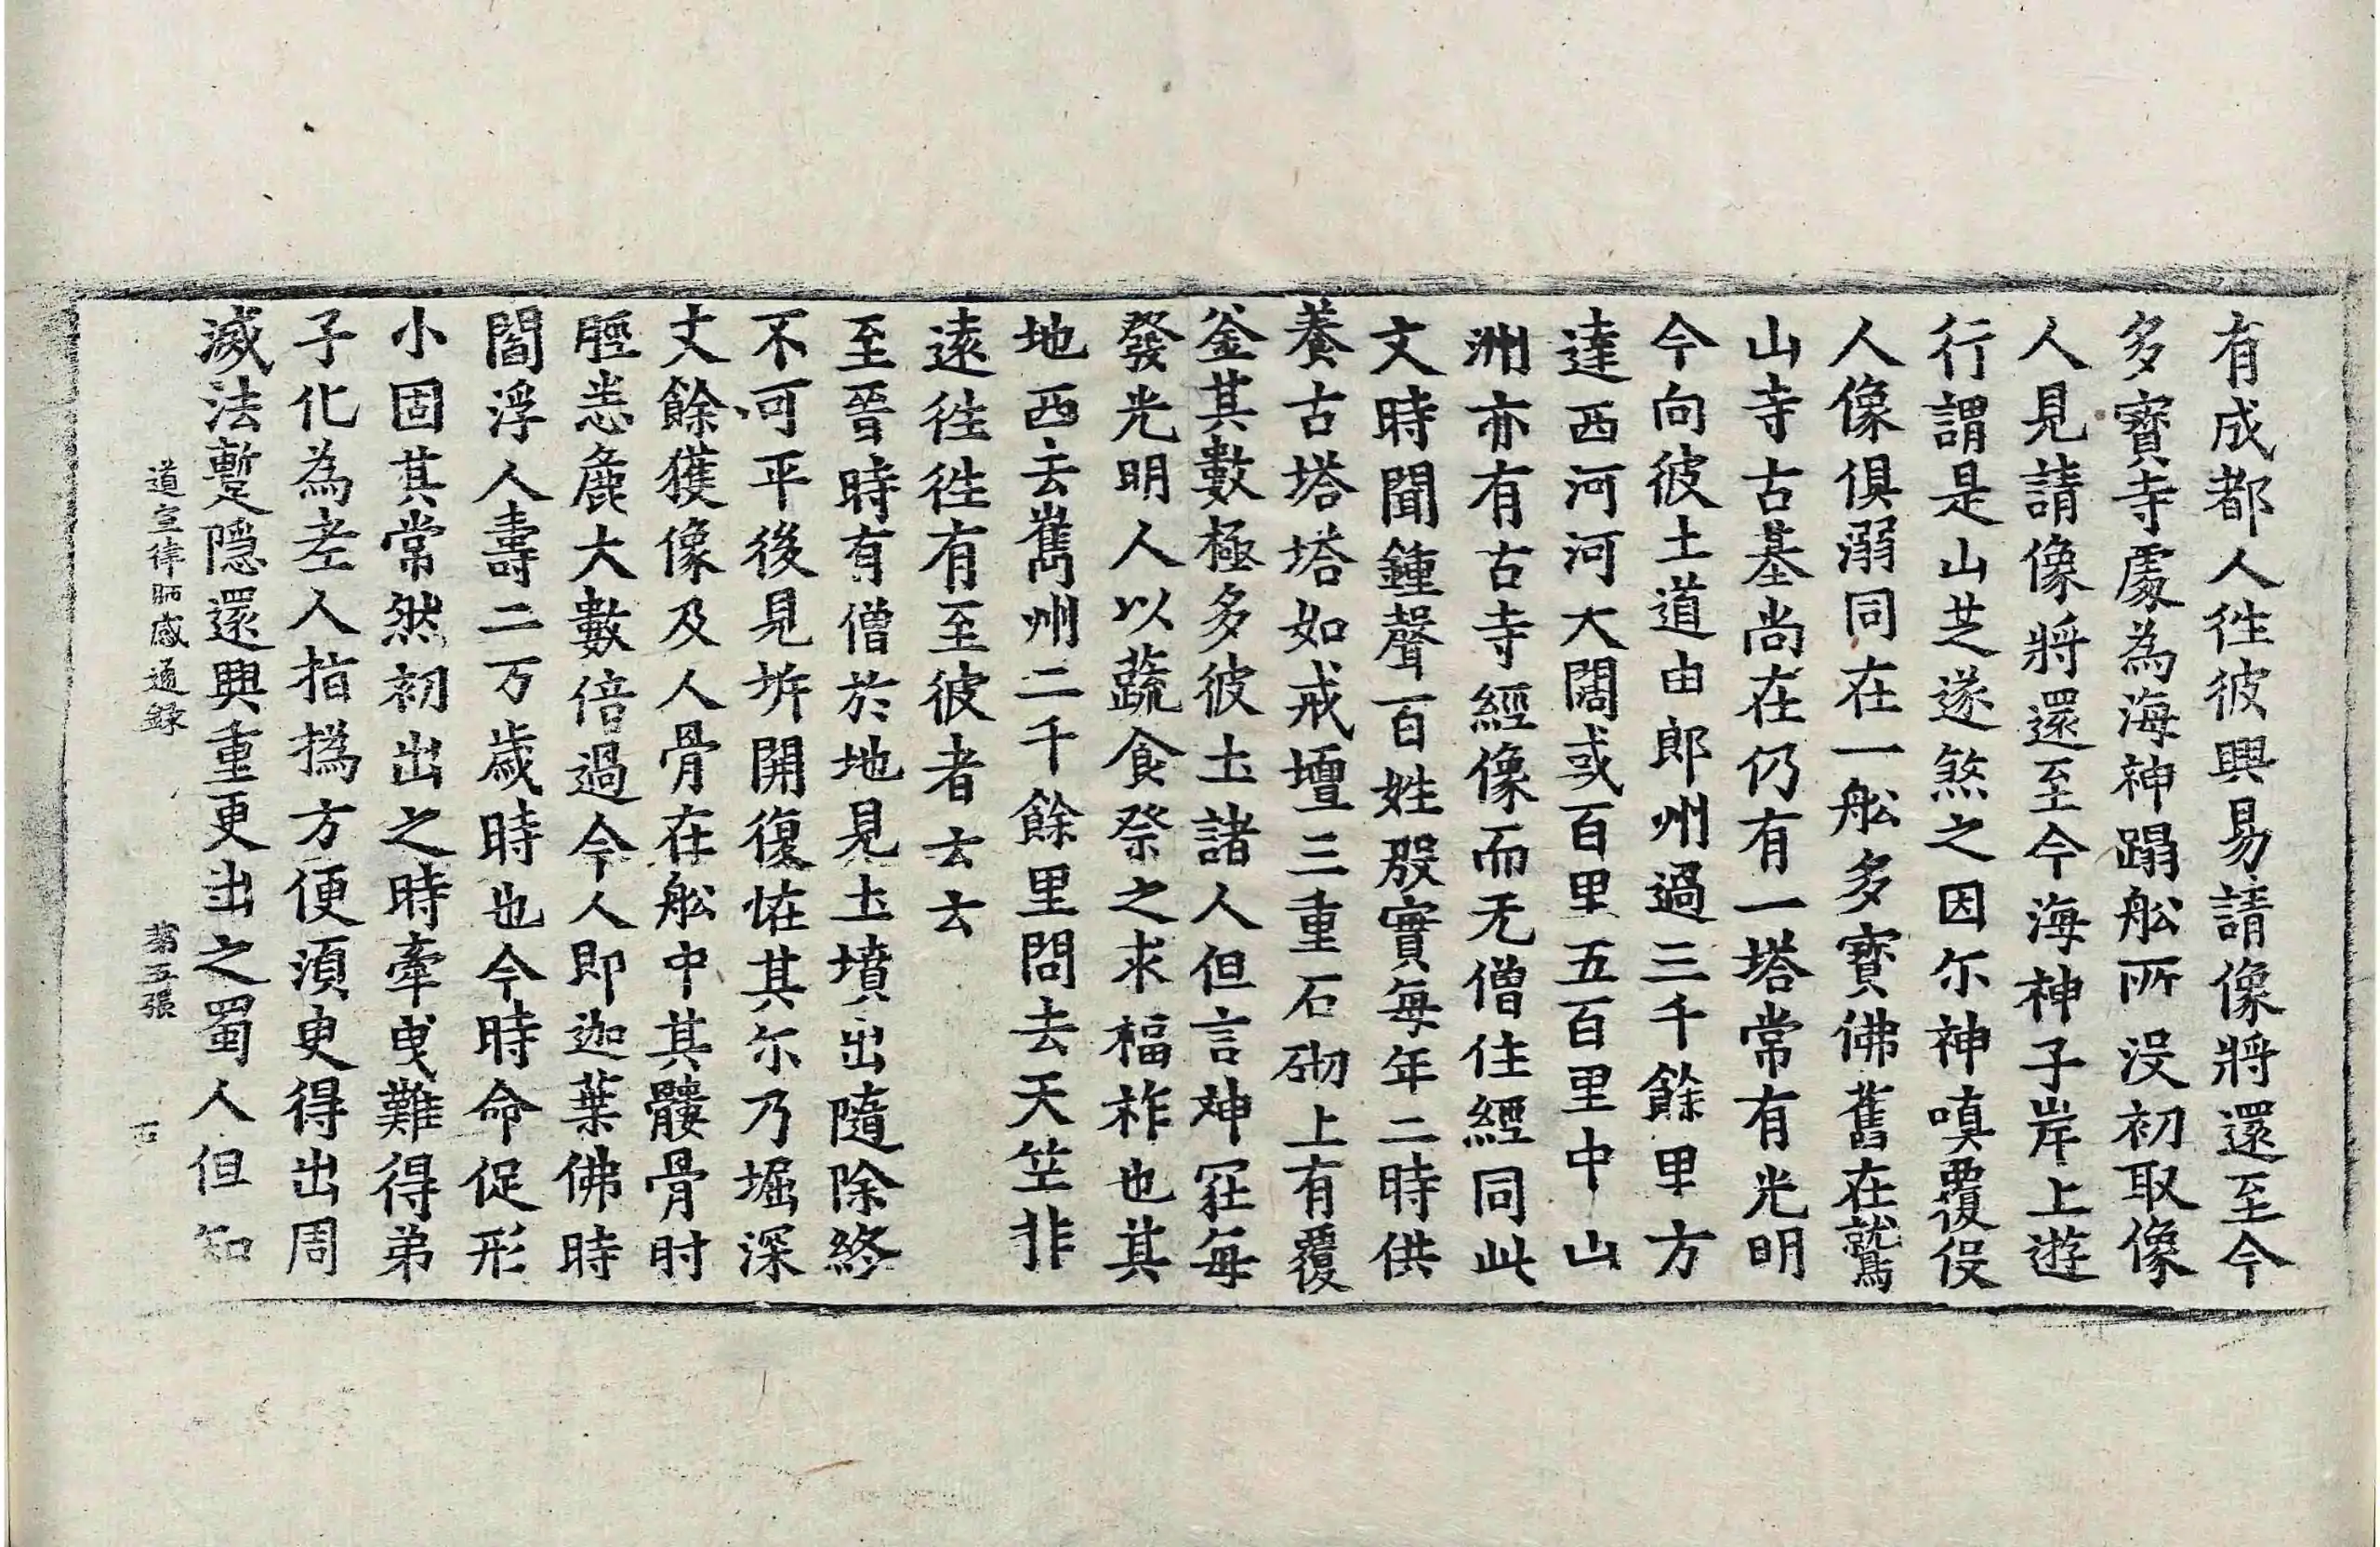 有成都人徃彼興易請像將還至今
多寶寺處為海神蹋舩所没初取像
人見請像將還至今海神子岸上遊
行謂是山芝遂煞之因尓神嗔覆伇
人像俱溺同在一舩多寶佛舊在鷲
山寺古基尚在仍有一塔常有光明
今向彼土道由郎州過三千餘里方
達西河河大闊或百里五百里中山
洲亦有古寺經像而无僧住經同此
文時聞鍾聲百姓殷實每年二時供
養古塔塔如戒壇三重石砌上有覆
釜其數極多彼土諸人但言神冢每
發光明人以蔬食祭之求福祚也其
地西去嶲州二千餘里問去天竺非
遠徃徃有至彼者云云
至晉時有僧於地見土墳出隨除終
不可平後見坼開復恠其尓乃堀深
丈餘獲像及人骨在舩中其髏骨肘
脛悉麁大數倍過今人即迦葉佛時
閻浮人壽二万歲時也今時命促形
小固其常然初出之時牽曳難得弟
子化為老人指撝方便須臾得出周
滅法蹔隱還興重更出之蜀人但知
道宣律師感通録 苐五張 石